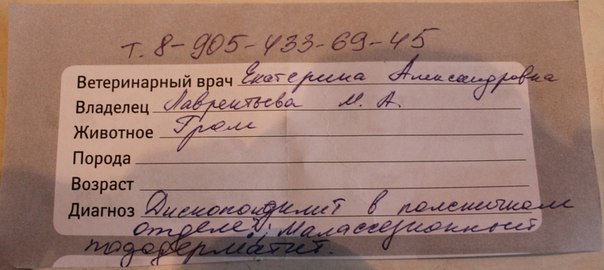 т. 8-905-433-69-45
Ветеринарный врач Екатерина Александровна
Владелец Лаврентьева М. А.
Животное Гром
Порода
Возраст
Диагноз Дископондилит в поясничном
отделе; Малассезионный
пододерматит.